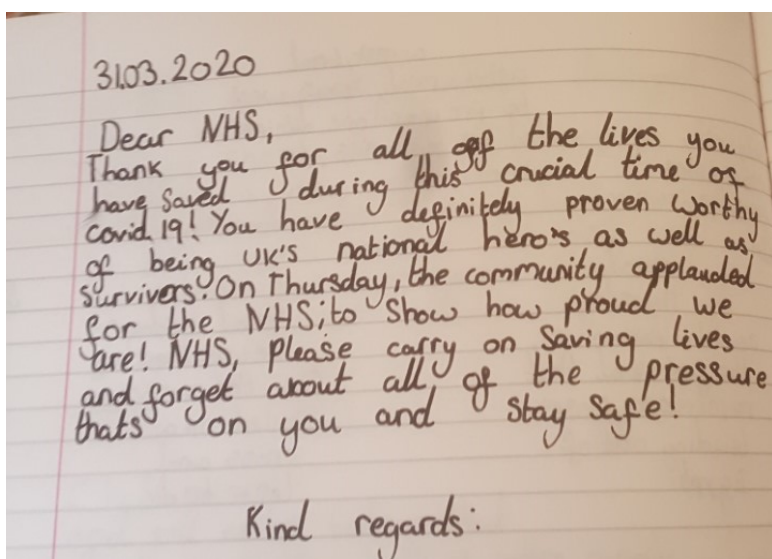 31.03.2020
Dear NHS,
Thank you for all off the lives you
have saved during this crucial time of
covid 19! You have definitely proven worthy
of being UK's national hero's as well as
survivers. On Thursday, the community applauded
for the NHS; to show how proud we
are! NHS, Please carry on saving lives
and forget about all of the pressure
thats on you and stay safe!
Kind regards: